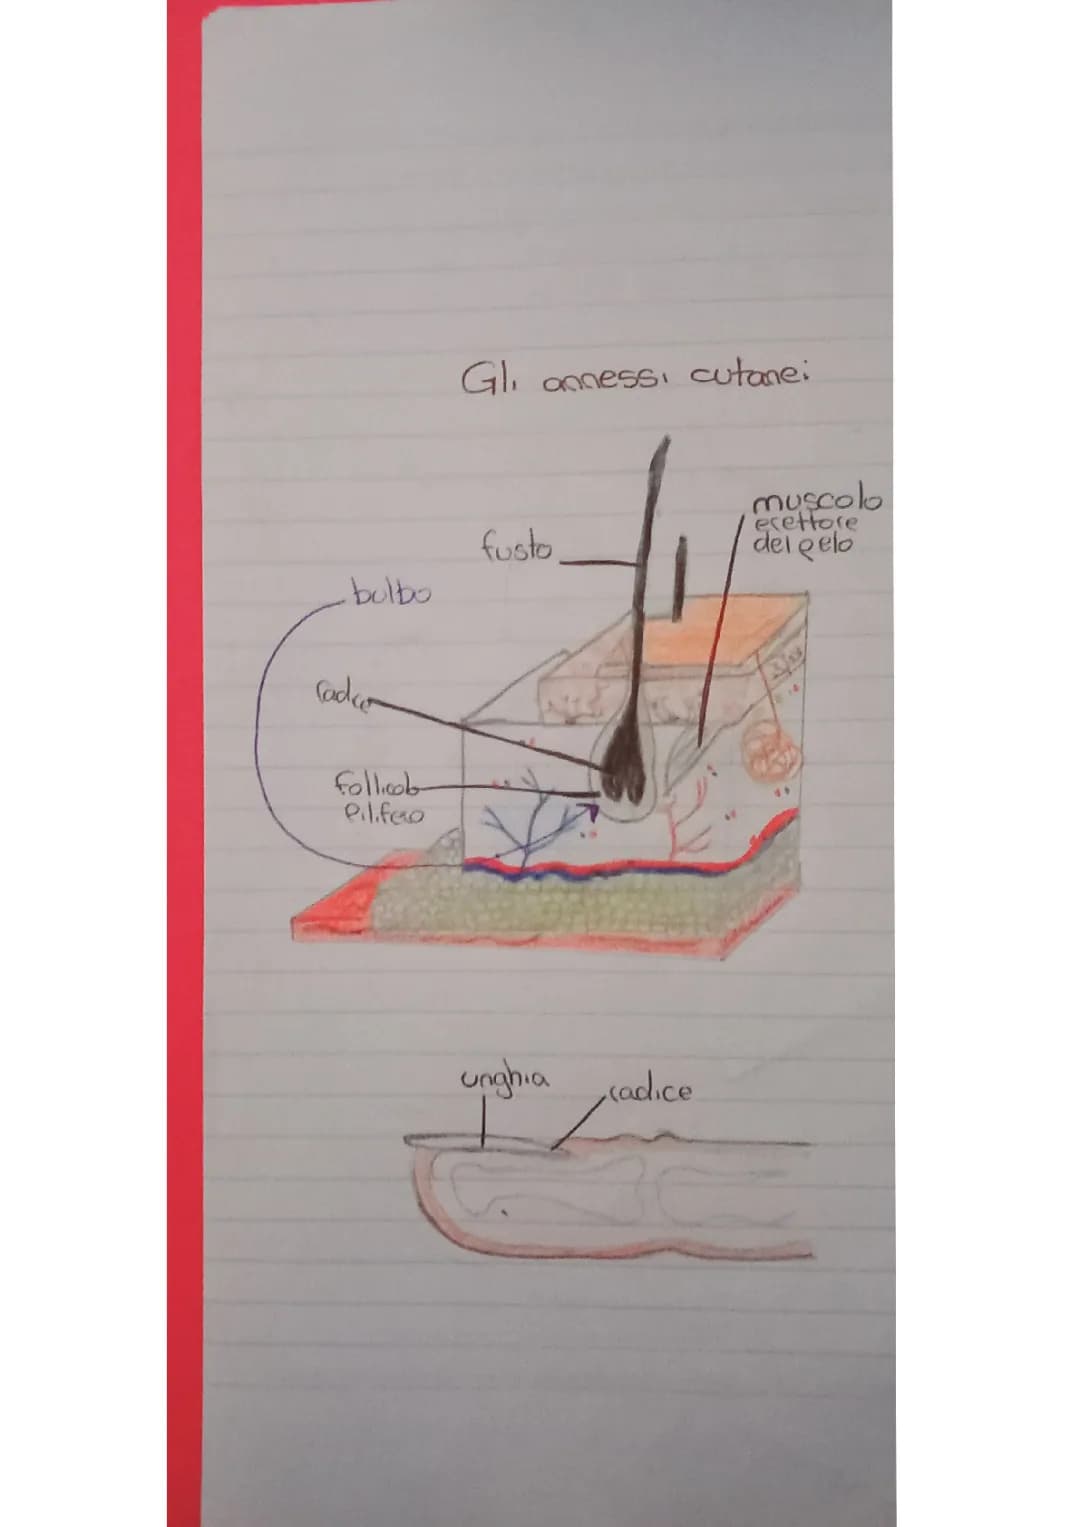 Gli annessi cutanei
muscolo
erettore
del pelo
fusto
bulbo
radice
follicolo
pilifero
unghia
radice